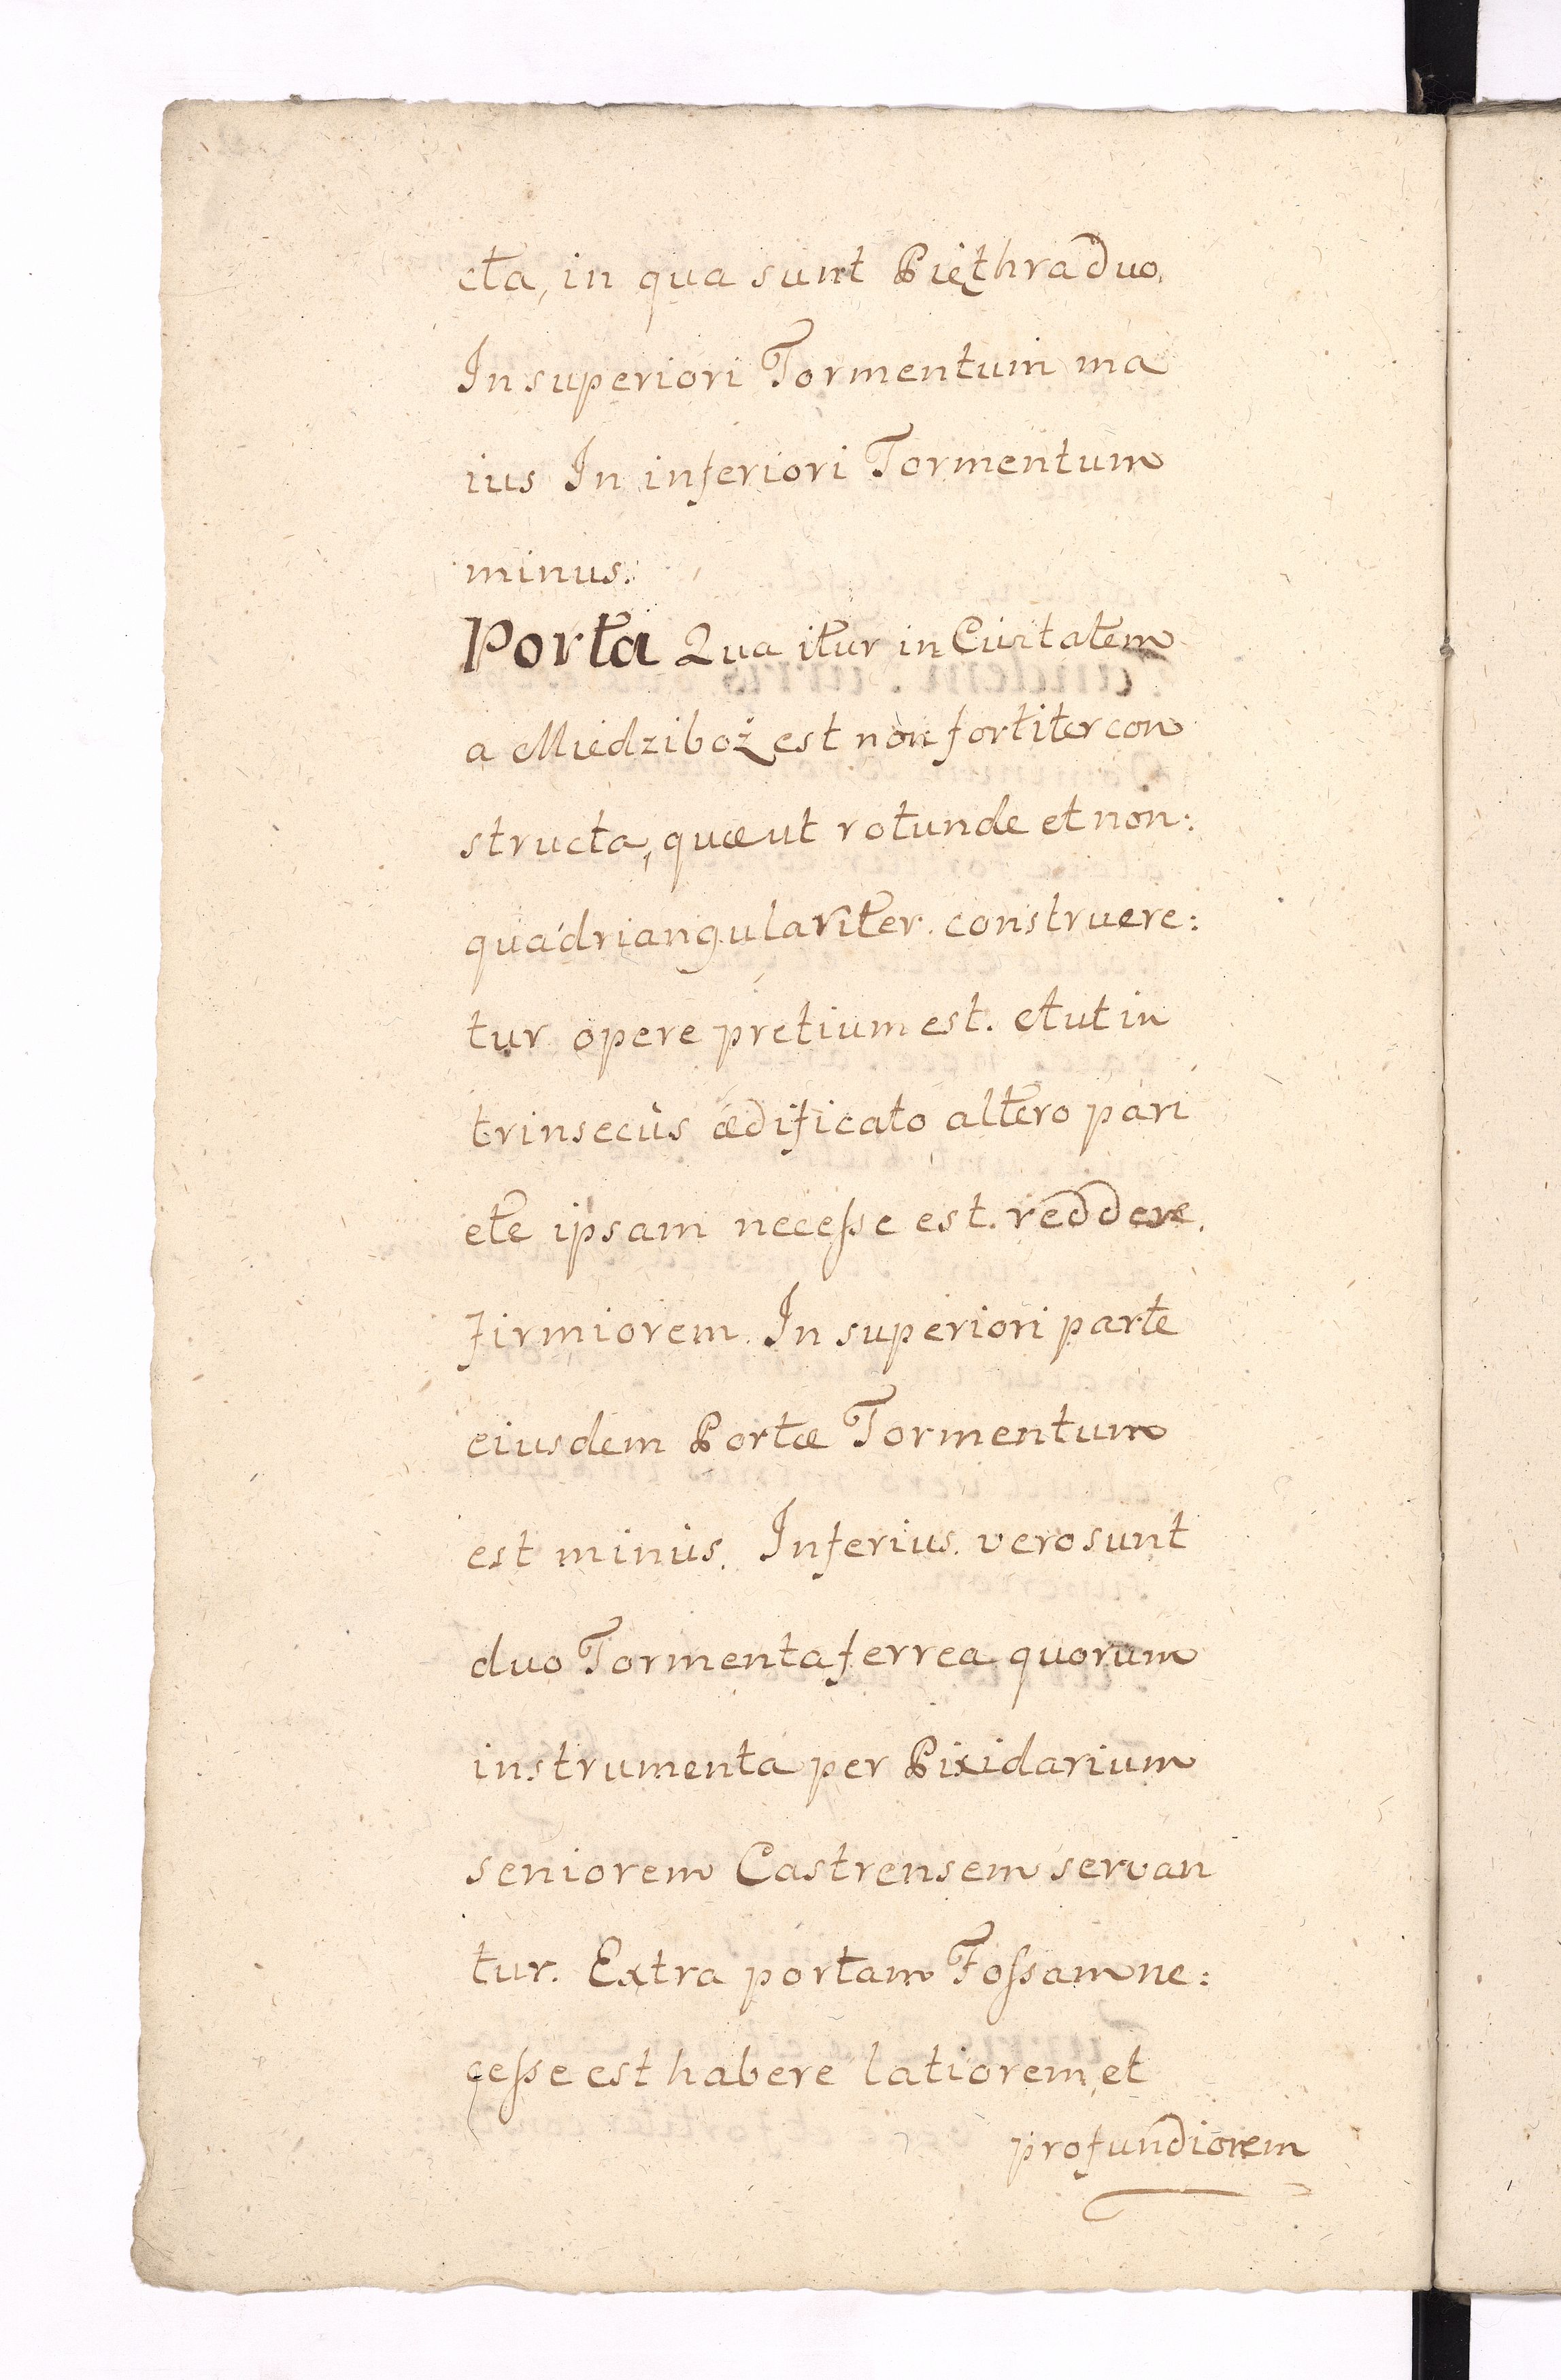 cta, in qua sunt Pięthra duo.
In superiori Tormentum ma
ius In inferiori Tormentum
minus.
Porta Qua itur in Civitatem
a Miedziboż est non fortiter con
structa, quæ ut rotunde et non:
quadriangulariter construere:
tur opere pretium est. et ut in
trinsecùs ædificato altero pari
ete ipsam necesse est. reddere.
firmiorem. In superiori parte
eiusdem Portæ Tormentum
est minùs. Inferius. vero sunt
duo Tormenta ferrea quorum
instrumenta per Pixidarium
seniorem Castrensem servan
tur. Extra portam Fossam ne:
cesse est habere latiorem et
profundiorem